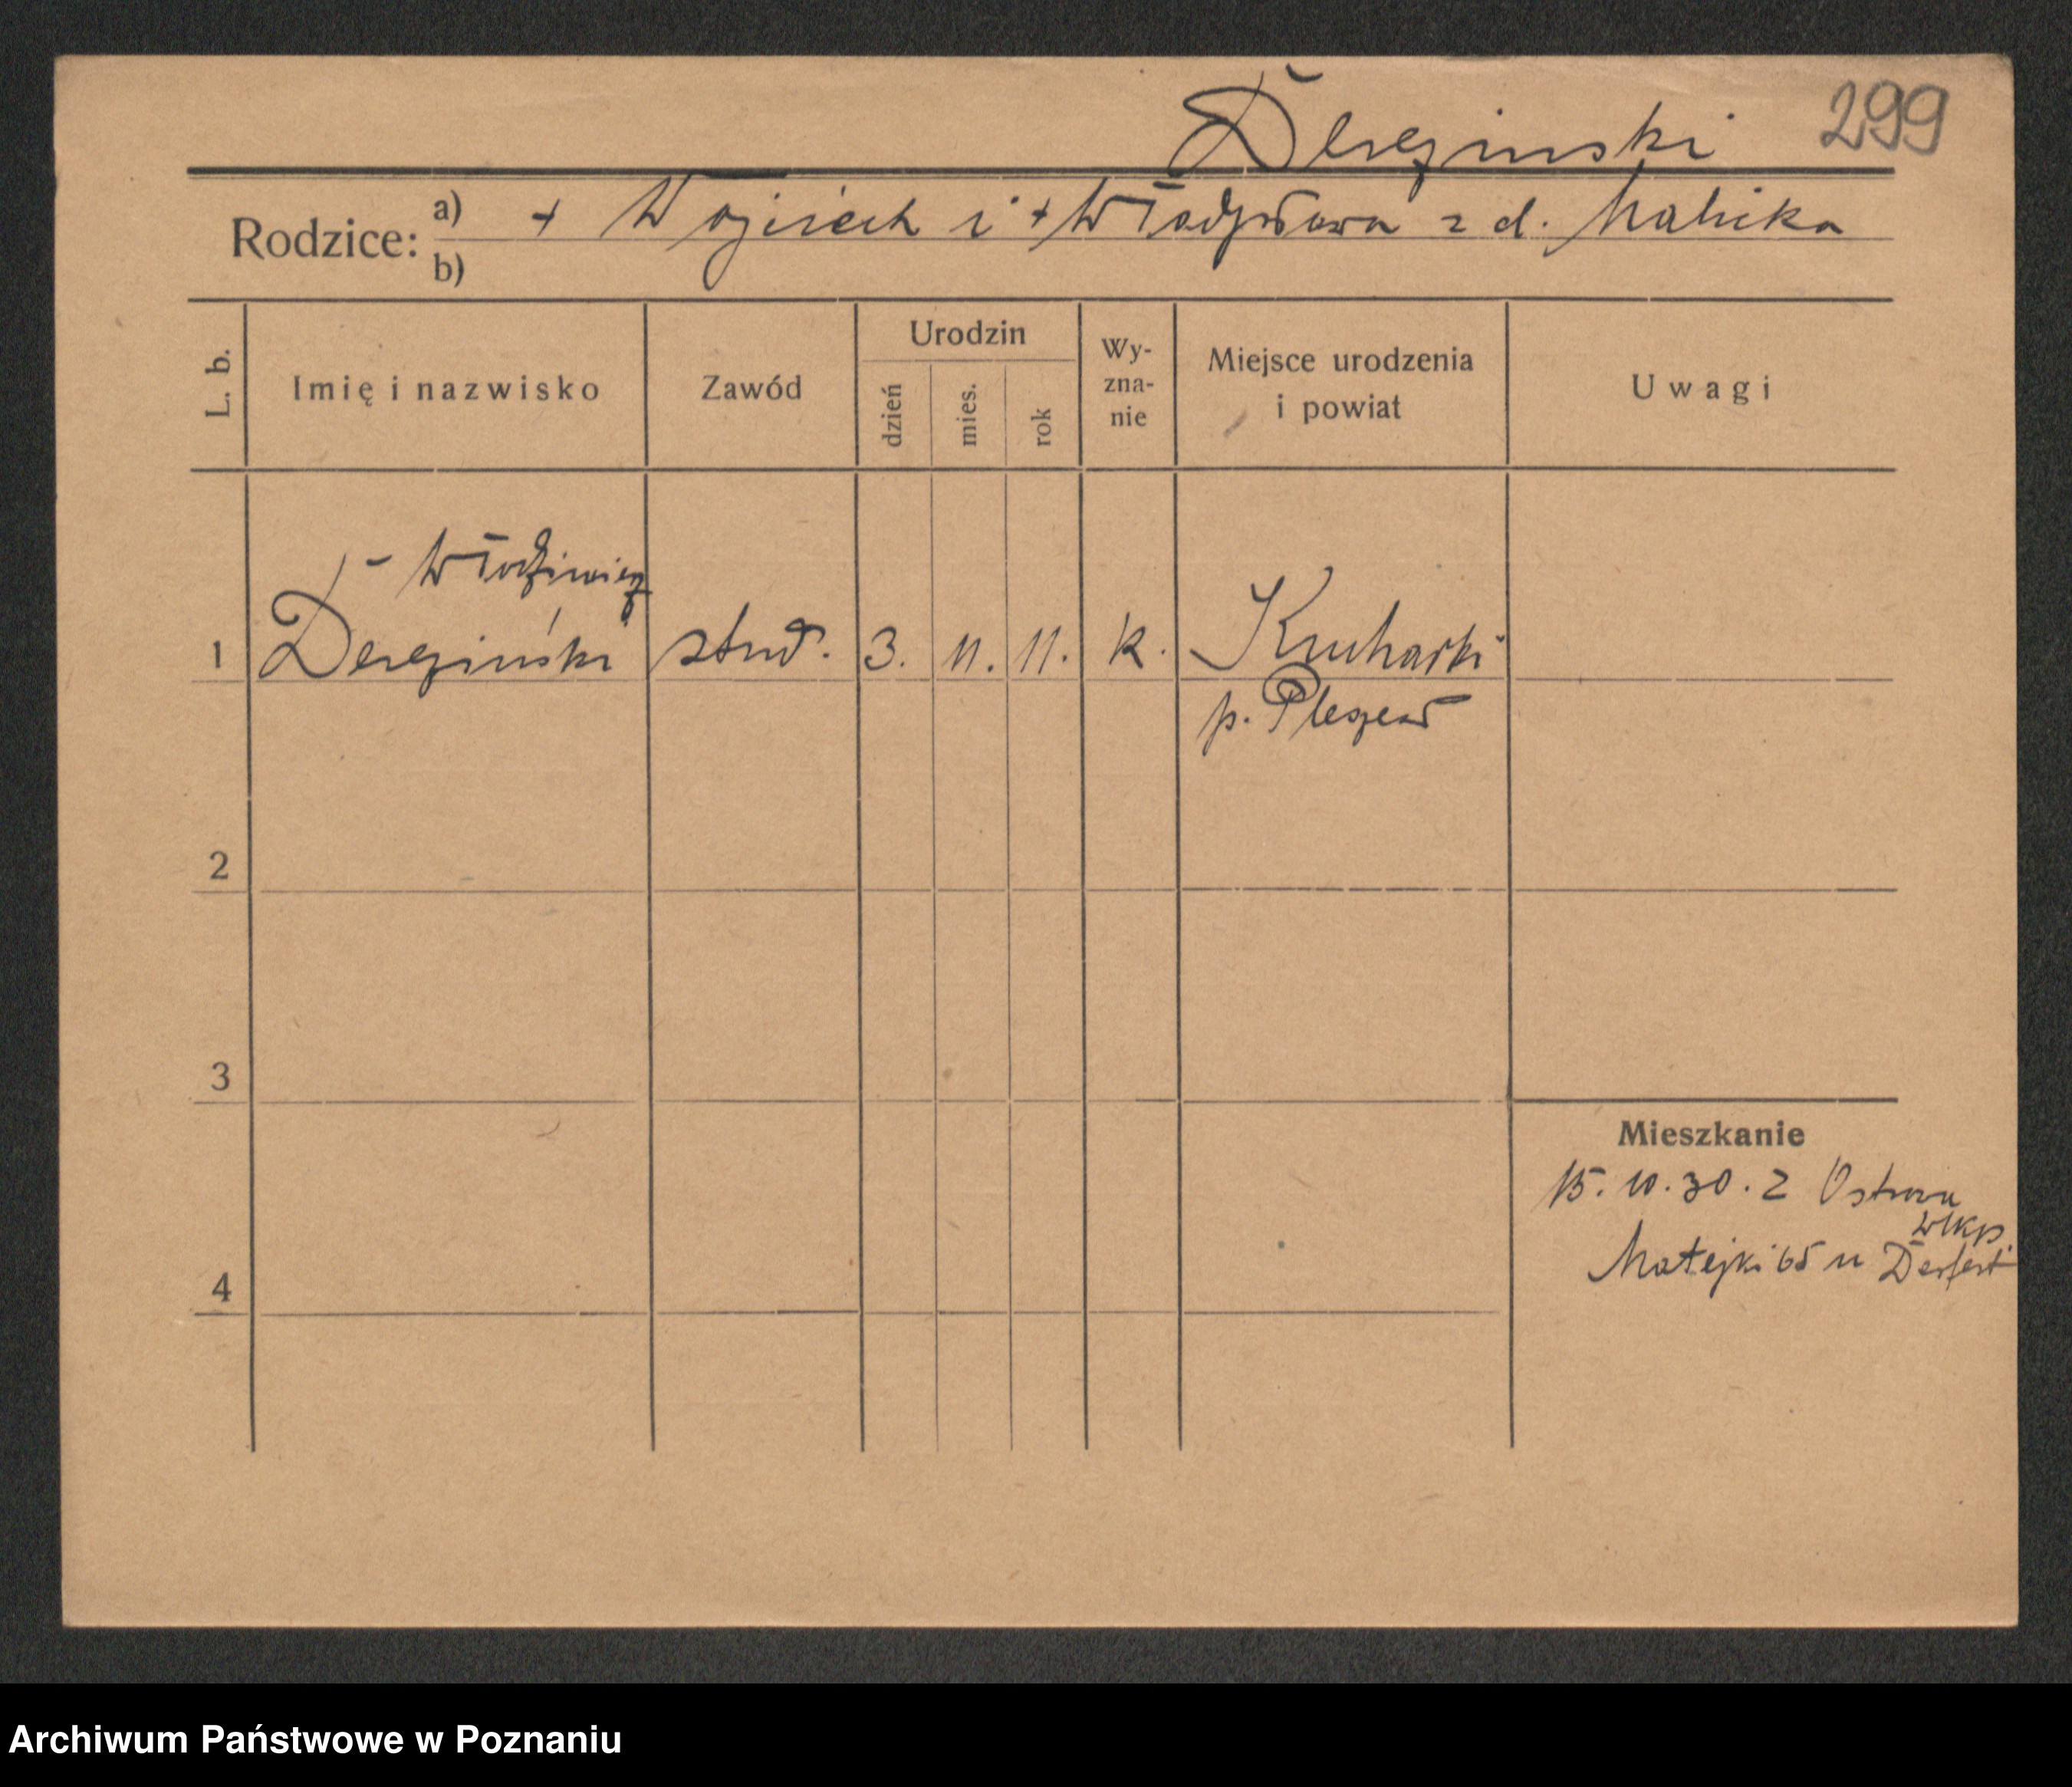 Derezinski 299
Rodzice: a) + Wojciech i + Władysława z d. Malicka
b)
L. b. Imię i nazwisko Zawód Urodzin dzień mies. rok Wy-zna-nie Miejsce urodzenia i powiat Uwagi
Włodzimierz
1 Dereziński stud. 3. 11. 11. k. Kucharki
p. Pleszew
2
3
Mieszkanie
15. 10. 30. z Ostrowa
wlkp.
Matejki 65 u
4
Archiwum Państwowe w Poznaniu